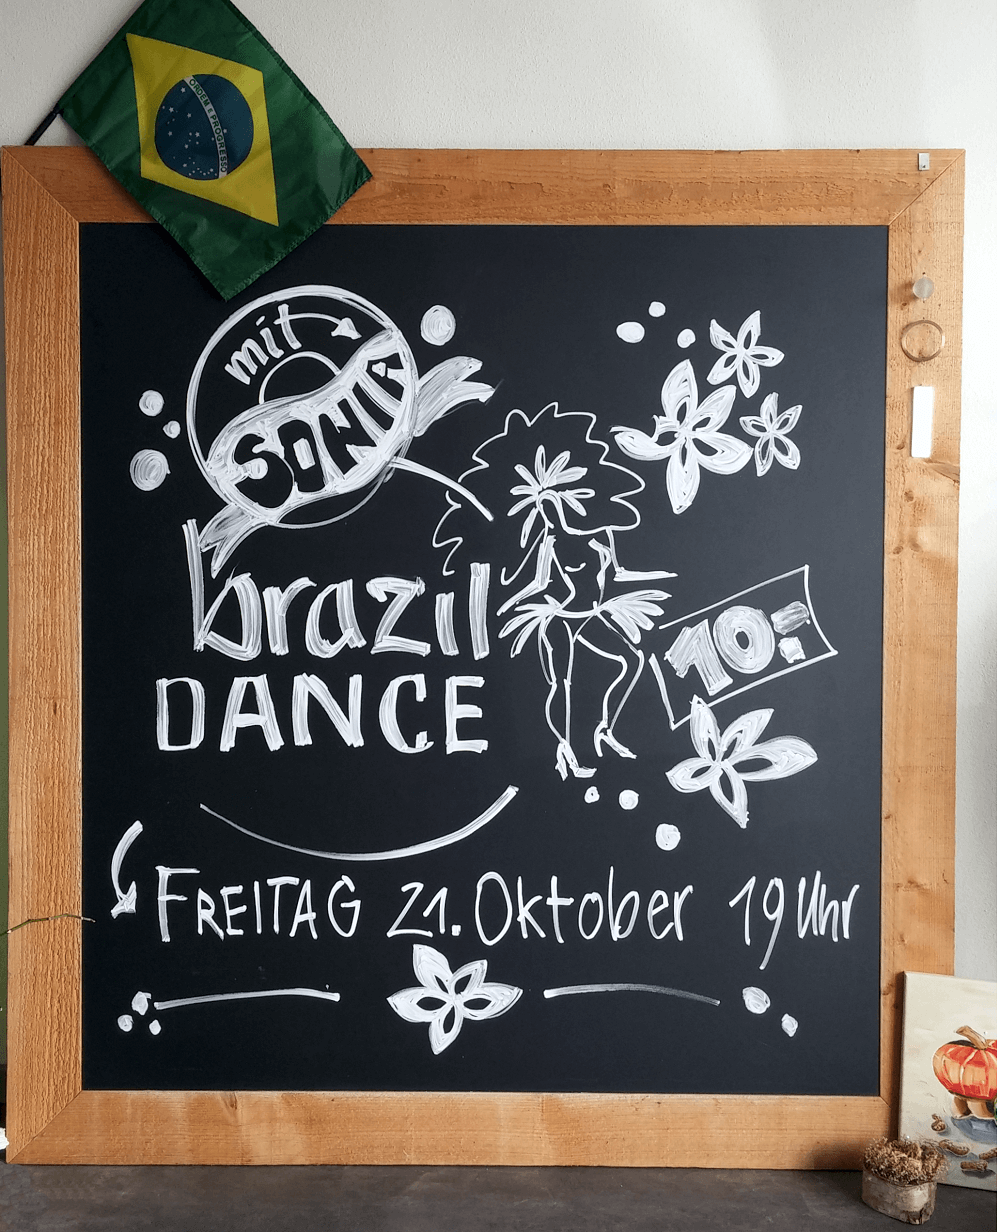 ORDEM E PROGRESSO
mit
SONIA
brazil
DANCE
10.-
FREITAG 21. Oktober 19 Uhr